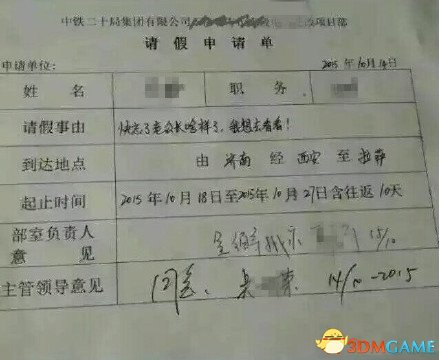 中铁二十局集团有限公司 项目部
请假申请单
申请单位: 2015年10月14日
姓 名 职 务
请假事由 快忘了老公长啥样了,我想去看看!
到达地点 由 济南 经 西安 至 拉萨
起止时间 2015年10月18日至2015年10月27日含往返10天
部室负责人
意 见 15/10
主管领导意见 同意. 14/10-2015
3DMGAME